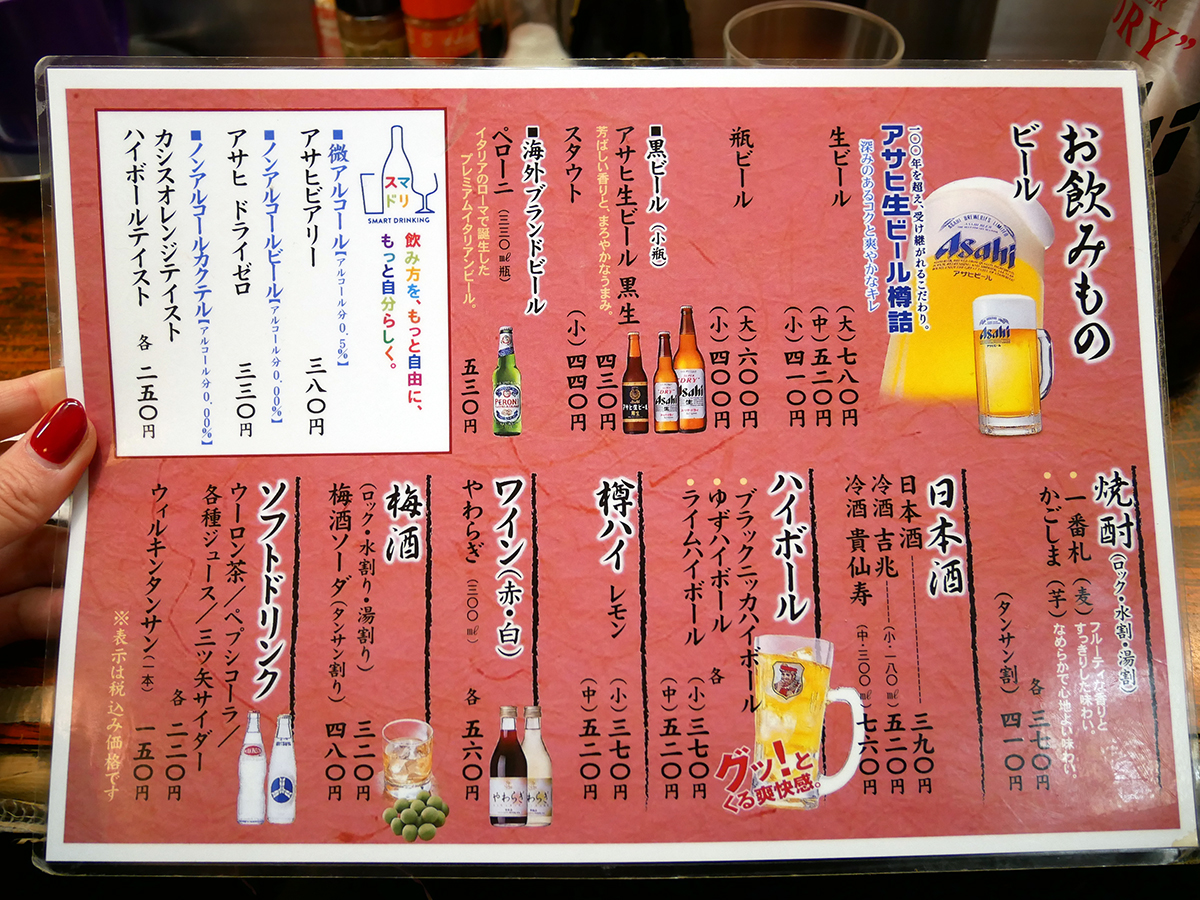 お飲みもの
ビール
一〇〇年を超え、受け継がれるこだわり。
アサヒ生ビール樽詰
深みのあるコクと爽やかなキレ
生ビール
(大)七八〇円
(中)五二〇円
(小)四一〇円
瓶ビール
(大)六〇〇円
(小)四〇〇円
■黒ビール(小瓶)
アサヒ生ビール 黒生 四三〇円
芳ばしい香りと、まろやかなうまみ。
スタウト (小)四四〇円
■海外ブランドビール
ペローニ(三三〇㎖瓶) 五三〇円
イタリアのローマで誕生した
プレミアムイタリアンビール。
スマドリ
SMART DRINKING
飲み方を、もっと自由に、
もっと自分らしく。
■微アルコール【アルコール分0.5%】
アサヒビアリー 三八〇円
■ノンアルコールビール【アルコール分0.00%】
アサヒ ドライゼロ 三三〇円
■ノンアルコールカクテル【アルコール分0.00%】
カシスオレンジテイスト
ハイボールテイスト 各 二五〇円
焼酎(ロック・水割・湯割)
●一番札(麦) フルーティな香りと
すっきりした味わい
●かごしま(芋) なめらかで心地よい味わい
各 三七〇円
(タンサン割) 四一〇円
日本酒
日本酒 三九〇円
冷酒 吉兆 (小・一八〇㎖)五二〇円
冷酒 貴仙寿 (中・三〇〇㎖)七六〇円
ハイボール
●ブラックニッカハイボール
●ゆずハイボール
●ライムハイボール
各 (小)三七〇円
(中)五二〇円
グッ!と
くる爽快感。
樽ハイ レモン
(小)三七〇円
(中)五二〇円
ワイン(赤・白)
やわらぎ(三〇〇㎖) 各 五六〇円
梅酒
(ロック・水割り・湯割り) 三二〇円
梅酒ソーダ(タンサン割り) 四八〇円
ソフトドリンク
ウーロン茶/ペプシコーラ/
各種ジュース/三ツ矢サイダー
各 二二〇円
ウィルキンタンサン(一本) 一五〇円
※表示は税込み価格です
Asahi
アサヒビール
Asahi
Asahi
Asahi
アサヒ生ビール
黒生
PERONI
やわらぎ
やわらぎ